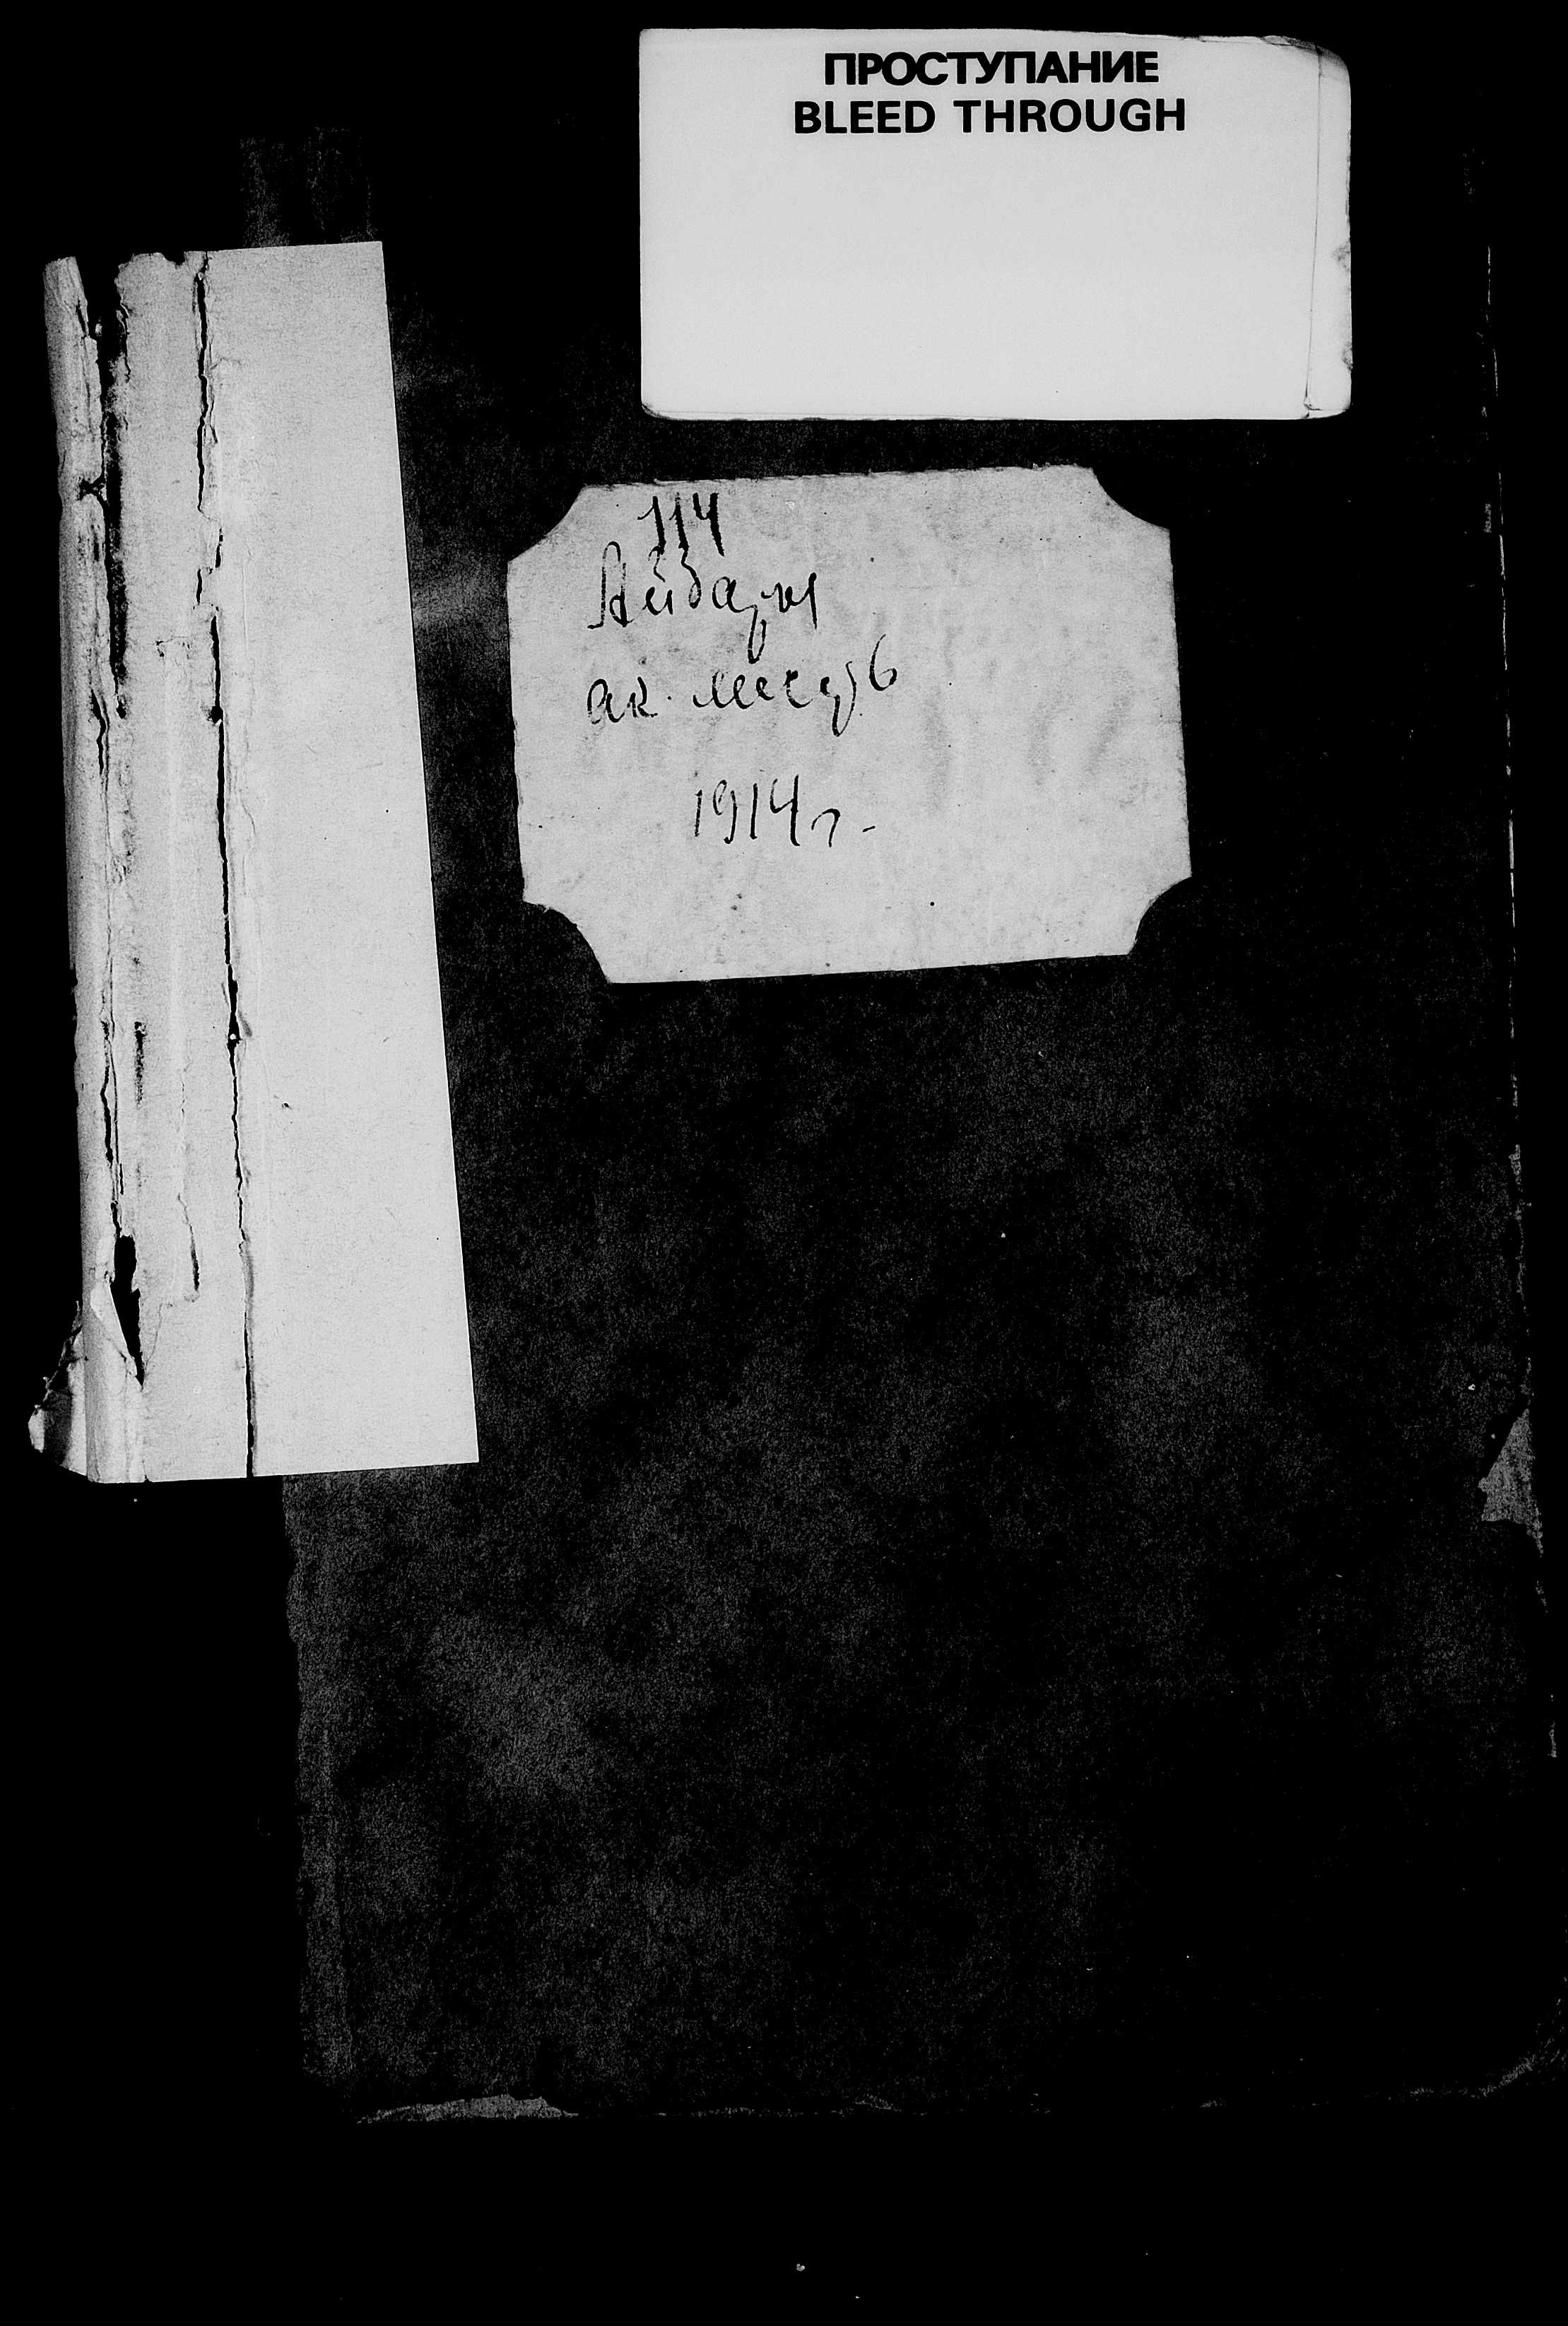 ПРОСТУПАНИЕ
BLEED THROUGH
114
Айдары
ак.
1914 г.